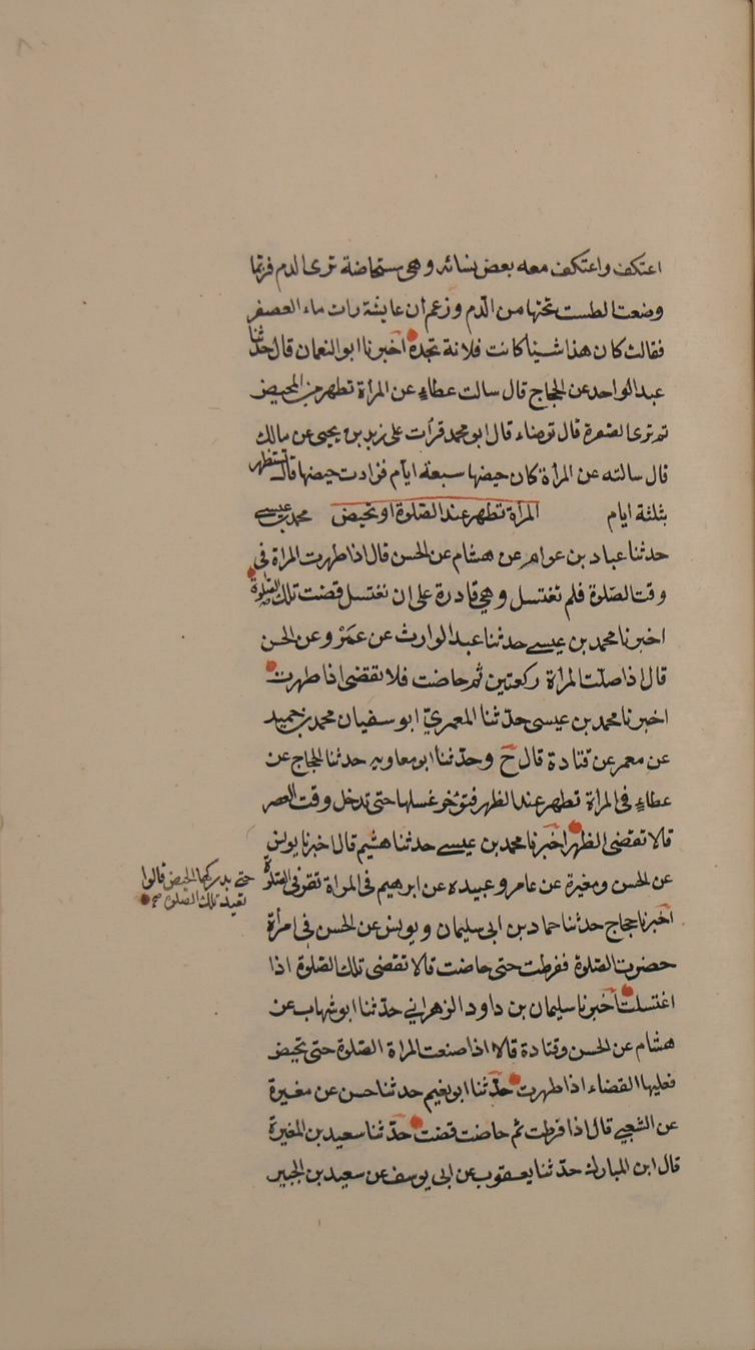 اعتكف واعتكف معه بعض نسائه وهى مستحاضة ترى الدم فربما
وضعت الطست تحتها من الدّم وزعم ان عايشة رات ماء العصفر
فقالت كان هذا شيئا كانت فلانة تجده اخبرنا ابو النعمان قال حدثنا
عبد الواحد عن الحجاج قال سالت عطاءٍ عن المرأة تطهر من المحيض
ثم ترى الصفرة قال توضاء قال ابو محمد قرأت على زيد بن يحيى عن مالك
قال سالته عن المرأة كان حيضها سبعة ايام فزادت حيضها قال تستظهر
بثلثة ايام المرأة تطهر عند الصّلوة او تحيض محمد بن عيسى
حدثنا عباد بن عوام عن هشام عن الحسن قال اذا طهرت المراة فى
وقت الصّلوة فلم تغتسل وهى قادرة على ان تغتسل قضت تلك الصّلوة
اخبرنا محمد بن عيسى حدثنا عبد الوارث عن عَمْرٍ وعن الحسن
قال اذا صلّت المرأة ركعتين ثم حاضت فلا تقضى اذا طهرت
اخبرنا محمد بن عيسى حدّثنا المعمرىّ ابو سفيان محمد بن حميد
عن معمر عن قتادة قال ح وحدّثنا ابو معاويه حدثنا الحجاج عن
عطاءٍ فى المراة تطهر عند الظهر فتؤخر غسلها حتى تدخل وقت العصر
قالا تقضى الظهر اخبرنا محمد بن عيسى حدثنا هشيم قال اخبرنا يونس
عن الحسن ومغيرة عن عامر وعبيده عن ابرهيم فى المراة تفرط فى الصّلوة
حتى يدركها الحيض قالوا
تعيد تلك الصّلوة صح
اخبرنا حجاج حدثنا حماد بن ابى سليمان ويونس عن الحسن فى امرأة
حضرت الصّلوة ففرطت حتى حاضت قالا تقضى تلك الصّلوة اذا
اغتسلت اخبرنا سليمان بن داود الزهرانى حدّثنا ابو شهاب عن
هشام عن الحسن وقتادة قالا اذا ضيعت المراة الصّلوة حتى تحيض
فعليها القضاء اذا طهرت حدّثنا ابو نعيم حدثنا حسن عن مغيرة
عن الشعبى قال اذا فرّطت ثم حاضت قضت حدّثنا سعيد بن المغيرة
قال ابن المبارك حدّثنا يعقوب عن ابى يوسف عن سعيد بن الجبير